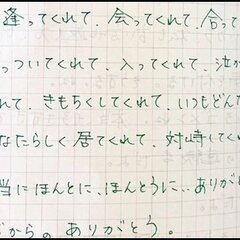 逢ってくれて、会ってくれて、合って
っついてくれて、入ってくれて、泣か
れて、きもちくしてくれて、いつもどんな
なたらしく居てくれて、対峙してく
当にほんとに、ほんとうに、、ありが
からの ありがとう。